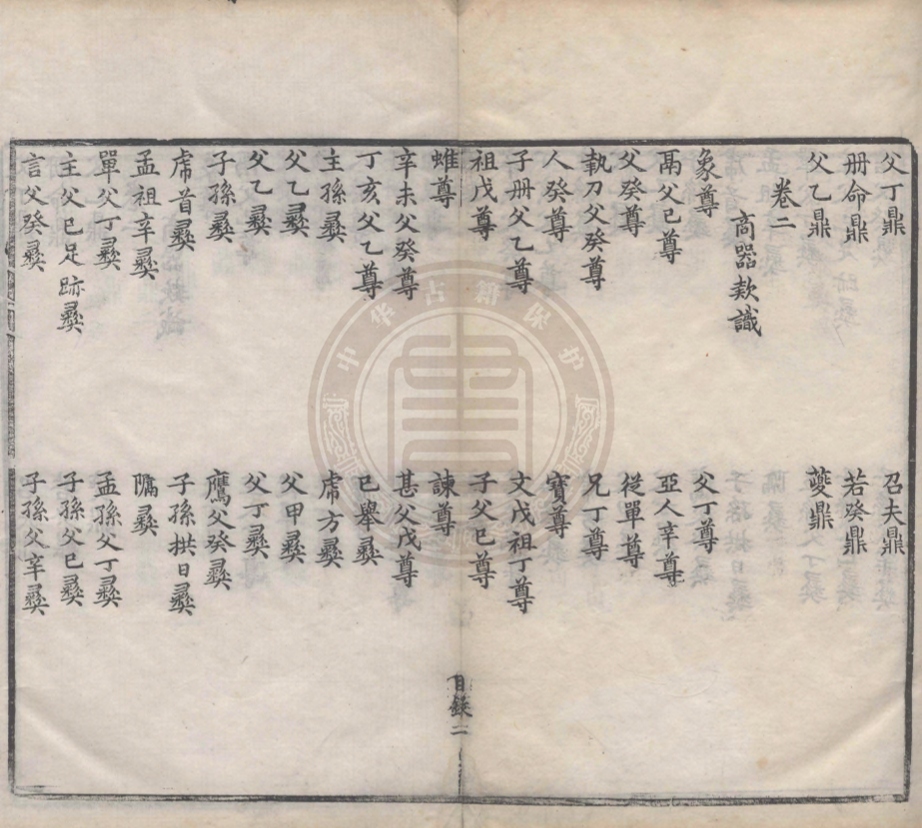 父丁鼎　召夫鼎
册命鼎　若癸鼎
父乙鼎　夔鼎
卷二
商器欵識
象尊　父丁尊
鬲父已尊　亞人辛尊
父癸尊　從單尊
執刀父癸尊　兄丁尊
人癸尊　寶尊
子册父乙尊　文戊祖丁尊
祖戊尊　子父已尊
蜼尊　諫尊
目錄二
辛未父癸尊　甚父戊尊
丁亥父乙尊　已舉彝
主孫彝　虎方彝
父乙彝　父甲彝
父乙彝　父丁彝
子孫彝　鷹父癸彝
虎首彝　子孫拱日彝
孟祖辛彝　彝
單父丁彝　孟孫父丁彝
主父已足跡彝　子孫父已彝
言父癸彝　子孫父辛彝
中华古籍保护